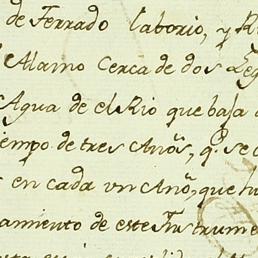 de Ferrado laborio, y R
Alamo cerca de dos Leg
Agua de el Rio que baja d
iempo de tres Años, q.e se c
en cada vn Año, que fu
amiento de este Instrume